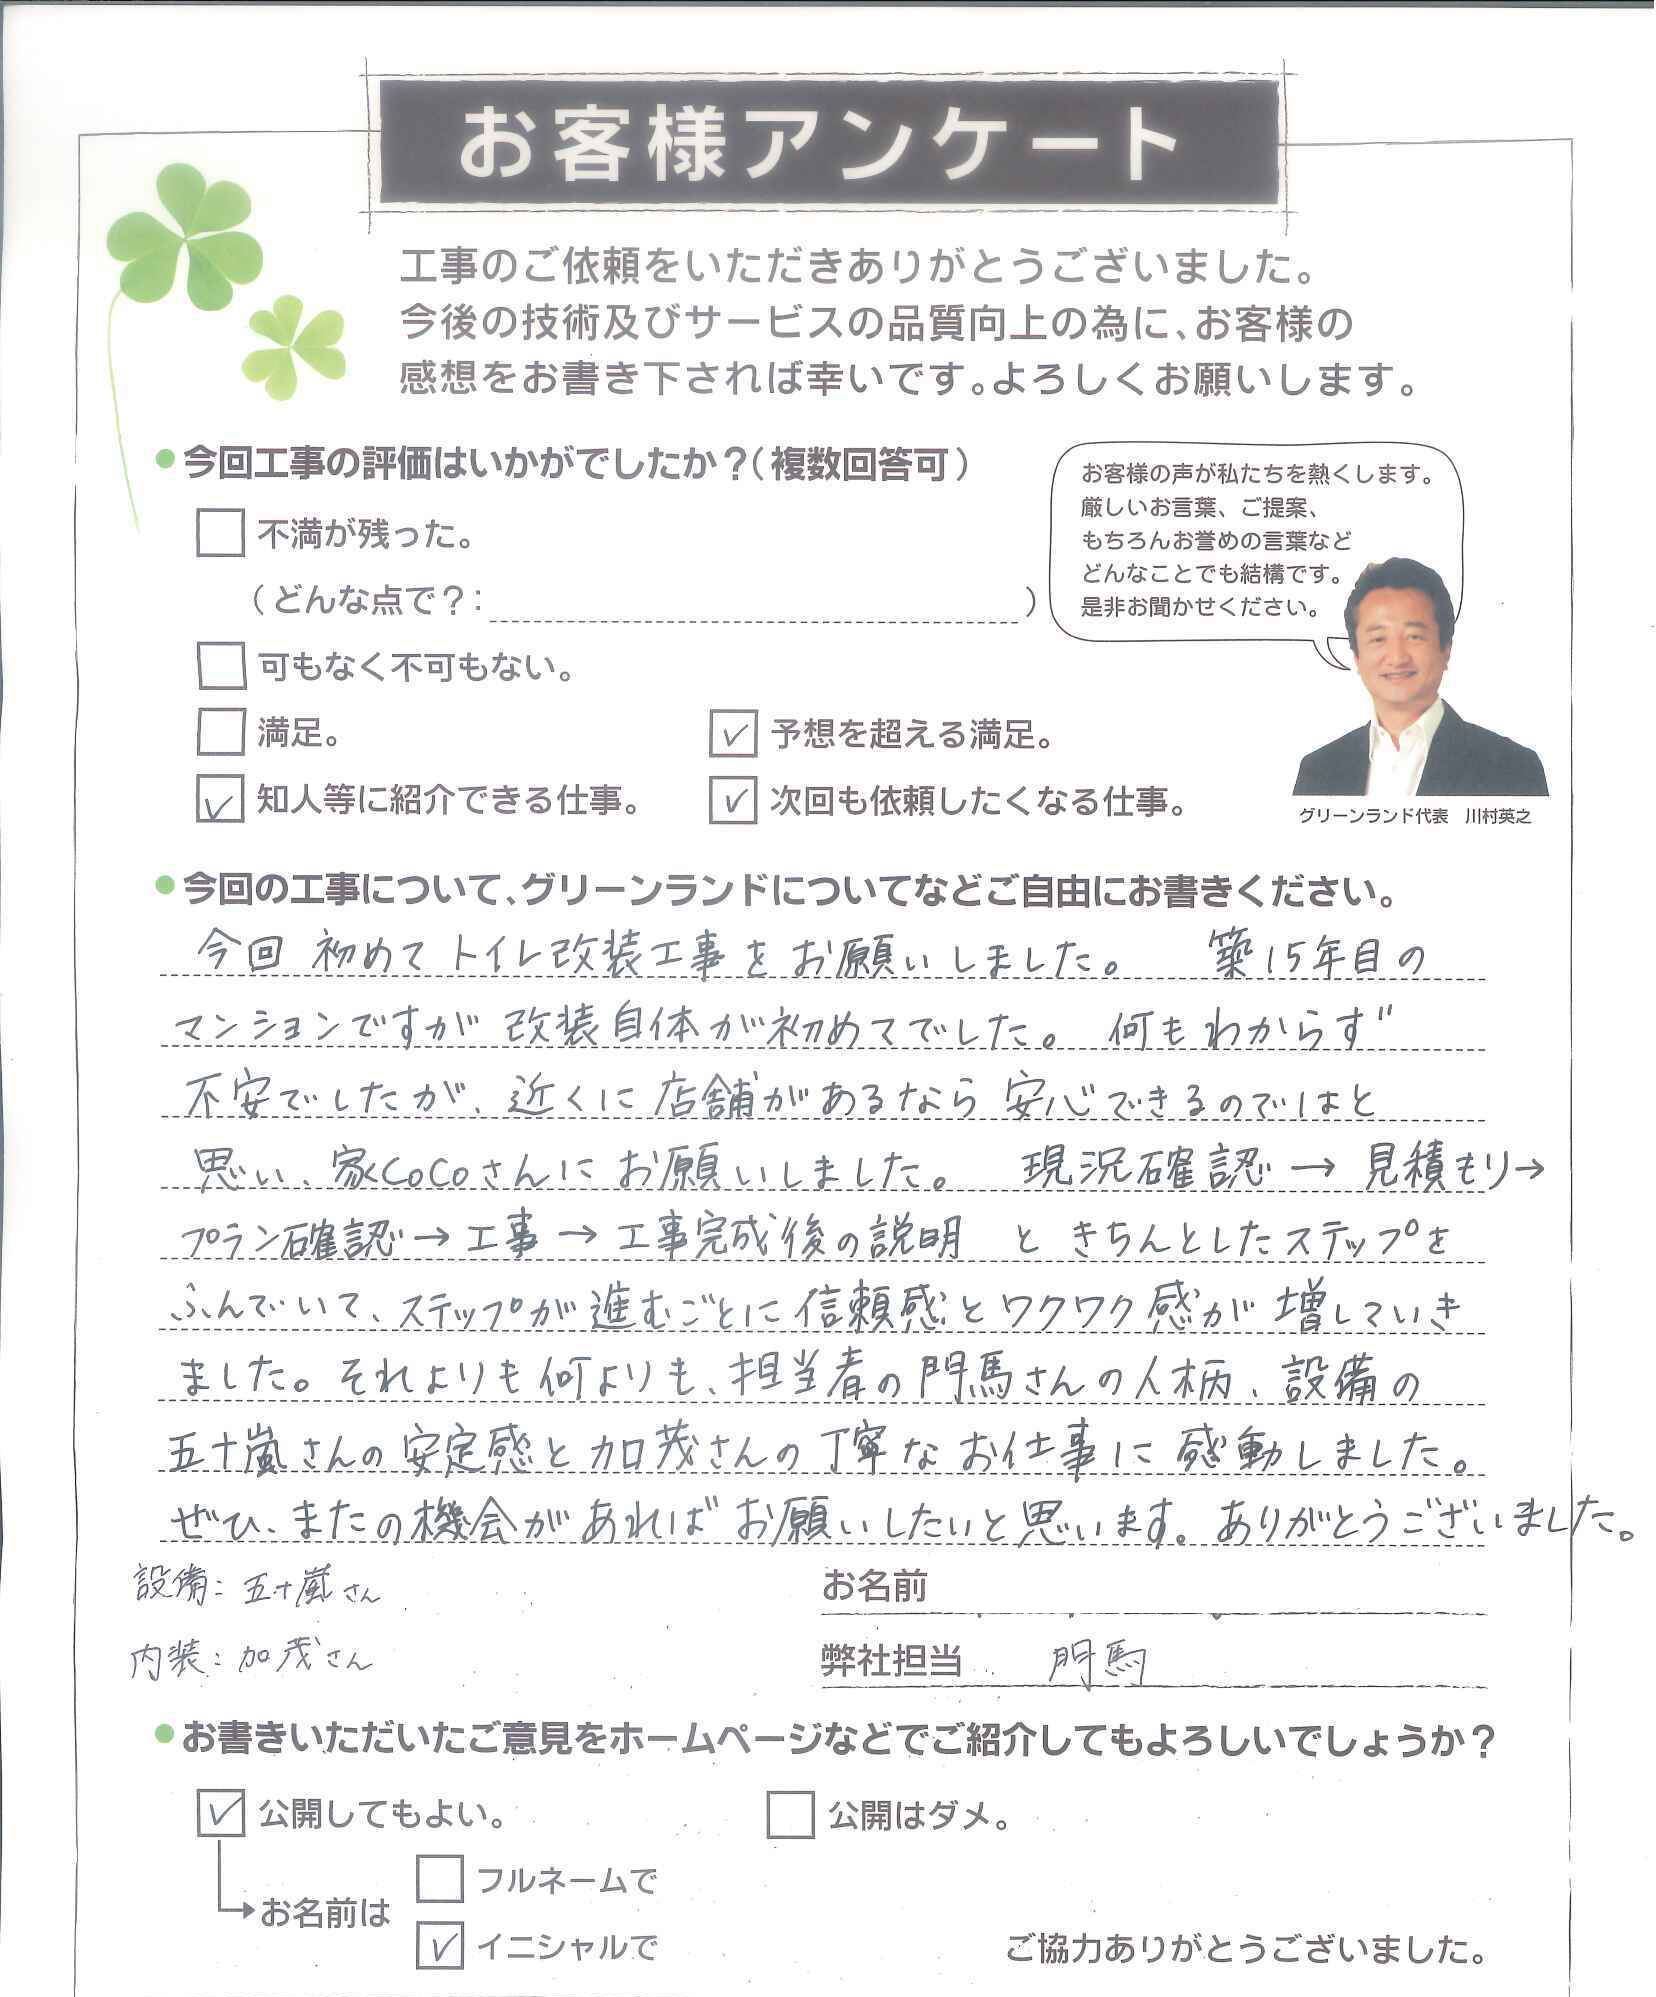 お客様アンケート
工事のご依頼をいただきありがとうございました。
今後の技術及びサービスの品質向上の為に、お客様の
感想をお書き下されば幸いです。よろしくお願いします。
今回工事の評価はいかがでしたか?(複数回答可)
お客様の声が私たちを熱くします。
厳しいお言葉、ご提案、
もちろんお誉めの言葉など
どんなことでも結構です。
是非お聞かせください。
グリーンランド代表 川村英之
不満が残った。
(どんな点で?: )
可もなく不可もない。
満足。
✓ 予想を超える満足。
✓ 知人等に紹介できる仕事。
✓ 次回も依頼したくなる仕事。
今回の工事について、グリーンランドについてなどご自由にお書きください。
今回 初めてトイレ改装工事をお願いしました。 築15年目の
マンションですが 改装自体が初めてでした。 何もわからず
不安でしたが、近くに店舗があるなら安心できるのではと
思い、家CoCoさんにお願いしました。 現況確認→見積もり→
プラン確認→工事→工事完成後の説明 ときちんとしたステップを
ふんでいて、ステップが進むごとに信頼感とワクワク感が増していき
ました。それよりも何よりも、担当者の門馬さんの人柄、設備の
五十嵐さんの安定感と加茂さんの丁寧なお仕事に感動しました。
ぜひ、またの機会があればお願いしたいと思います。ありがとうございました。
設備:五十嵐さん
内装:加茂さん
お名前
弊社担当 門馬
お書きいただいたご意見をホームページなどでご紹介してもよろしいでしょうか?
✓ 公開してもよい。
公開はダメ。
お名前は
フルネームで
✓ イニシャルで
ご協力ありがとうございました。